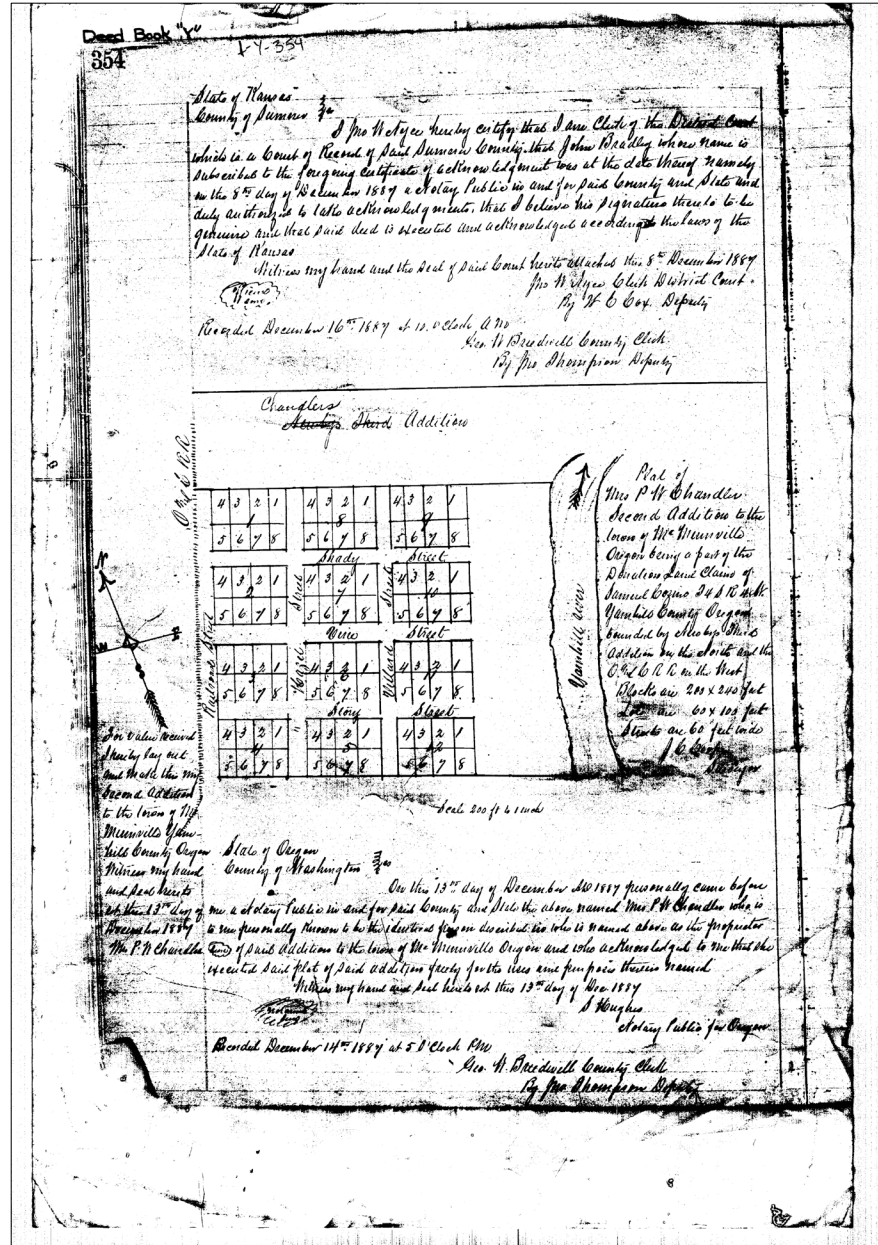 Deed Book "Y"
1-Y-354
354
State of Kansas
County of Sumner } ss
I Jno W Nyce hereby certify that I am Clerk of the District Court
which is a Court of Record of said Sumner County, that John Bradley whose name is
subscribed to the foregoing certificate of acknowledgment was at the date thereof namely
on the 8th day of December 1887 a Notary Public in and for said County and State and
duly authorized to take acknowledgments, that I believe his signature thereto to be
genuine and that said deed is executed and acknowledged according to the laws of the
State of Kansas
Witness my hand and the seal of said Court hereto attached this 8th December 1887
Jno W Nyce Clerk District Court.
By W E Cox. Deputy
Recorded December 16th 1887 at 10. O'Clock A M
Geo. W Breedwell County Clerk
By Jno Thompson Deputy
Chandlers
Newbys Third Addition
O & C R R
4 3 2 1 4 3 2 1 4 3 2 1
1 8 9
5 6 7 8 5 6 7 8 5 6 7 8
Shady Street
4 3 2 1 4 3 2 1 4 3 2 1
2 7 10
5 6 7 8 5 6 7 8 5 6 7 8
Vine Street
4 3 2 1 4 3 2 1 4 3 2 1
3 6 11
5 6 7 8 5 6 7 8 5 6 7 8
Story Street
4 3 2 1 4 3 2 1 4 3 2 1
4 5 12
5 6 7 8 5 6 7 8 5 6 7 8
Railroad Street
Hazel Street
Willard Street
Yamhill River
N
W
E
Plat of
Mrs P W Chandler
Second Addition to the
town of McMinnville
Oregon being a part of the
Donation Land Claim of
Samuel Cozine T 4 S R 4 W
Yamhill County Oregon
bounded by Newbys Third
Addition on the North and the
O & C R R on the West
Blocks are 200 x 240 feet
Lots are 60 x 100 feet
Streets are 60 feet wide
J C Cooper
Surveyor
Scale 200 ft to 1 inch
For value received
I hereby lay out
and make this my
Second Addition
to the town of Mc
Minnville Yam-
hill County Oregon
Witness my hand
and seal hereto
at this 13th day of
December 1887
Mrs P. W Chandler
State of Oregon
County of Washington } ss
On this 13th day of December AD 1887 personally came before
me a Notary Public in and for said County and State the above named Mrs P. W Chandler who is
to me personally known to be the identical person described in who is named above as the proprietor
of said addition to the town of Mc Minnville Oregon and who acknowledged to me that she
executed said plat of said addition freely for the uses and purposes therein named
Witness my hand and seal hereto set this 13th day of Dec 1887
S Hughes
Notary Public for Oregon
Recorded December 14th 1887 at 5 O'Clock PM
Geo. W. Breedwell County Clerk
By Jno Thompson Deputy